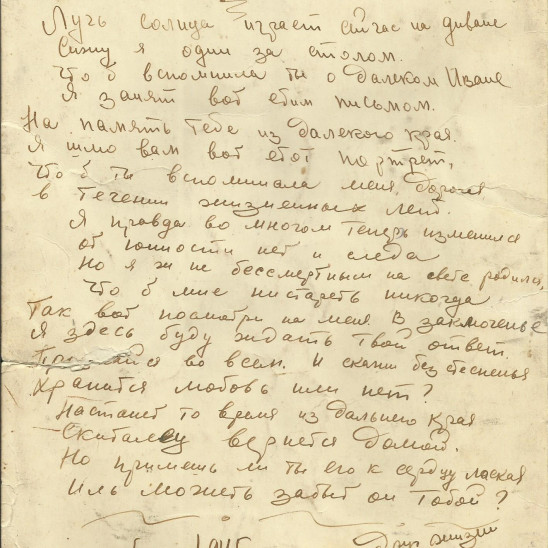 Лучь солнца играет сейчас на диване
Сижу я один за столом.
Что б вспомнила ты о далеком Иване
Я занят вот етим письмом.
На память тебе из далекого края.
Я шлю вам вот етот портрет,
Что б ты вспоминала меня, дорогая
в течении жизненных лет.
Я правда во многом теперь изменился
от юности нет и следа
Но я ж не бессмертным на свете родился,
Что б мне нистареть никогда
Так вот посмотри на меня. В заключенье
Я здесь буду ждать твой ответ.
во всем. И скажи без стесненья
Хранится любовь или нет?
Настанет то время из дальнего края
Скиталец вернется домой.
Но примешь ли ты его к сердцу лаская
Иль можеть забыт он тобой?
жизни